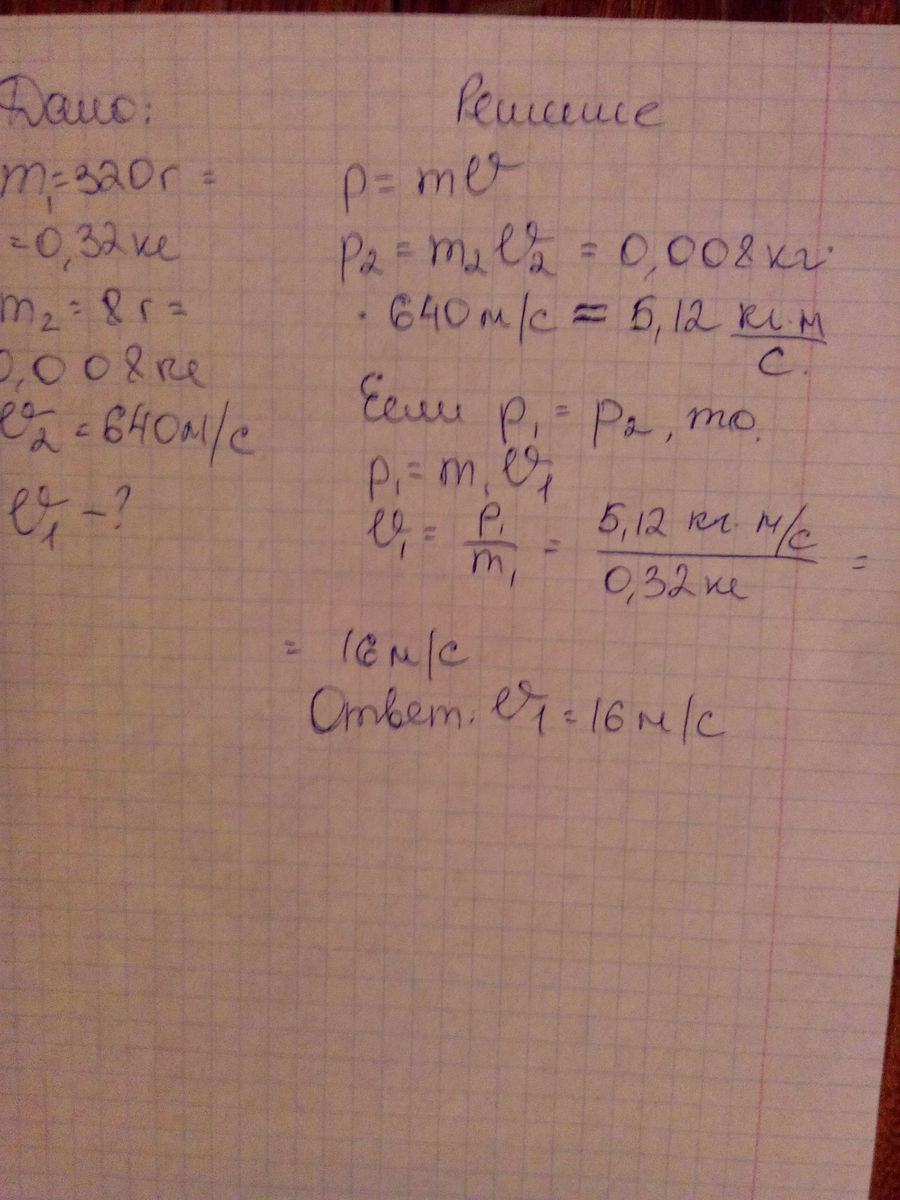 Дано:
m₁=320г =
=0,32кг
m₂=8г=
0,008кг
υ₂=640м/с
υ₁-?
Решение
p=mυ
p₂=m₂υ₂=0,008кг·
·640м/с=5,12 кг·м/с.
Если p₁=p₂, то.
p₁=m₁υ₁
υ₁= p₁/m₁ = 5,12 кг·м/с / 0,32кг =
= 16м/с
Ответ. υ₁=16м/с